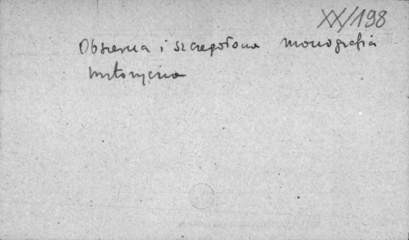 XX/198
Obszerna i szczegółowa monografia
historyczna